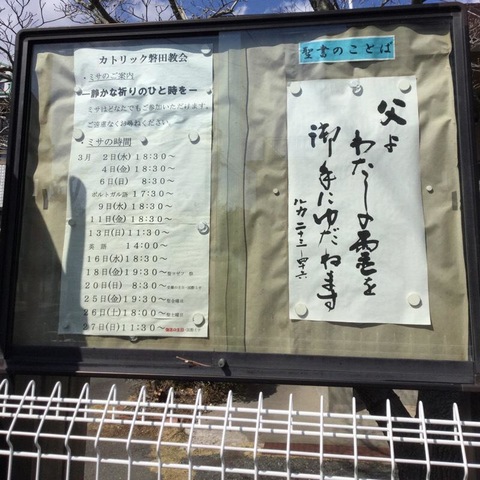 カトリック磐田教会
・ミサのご案内
―静かな祈りのひと時を―
ミサはどなたでもご参加いただけます。
ご遠慮なくお尋ねください。
・ミサの時間
3月 2日(水) 18:30~
4日(金) 18:30~
6日(日) 8:30~
ポルトガル語 17:30~
9日(水) 18:30~
11日(金) 18:30~
13日(日) 11:30~
英語 14:00~
16日(水) 18:30~
18日(金) 19:30~
20日(日) 8:30~
25日(金) 19:30~
26日(土) 18:00~
27日(日) 11:30~
聖書のことば
父よ
わたしの霊を
御手にゆだねます
ルカ二十三-四十六